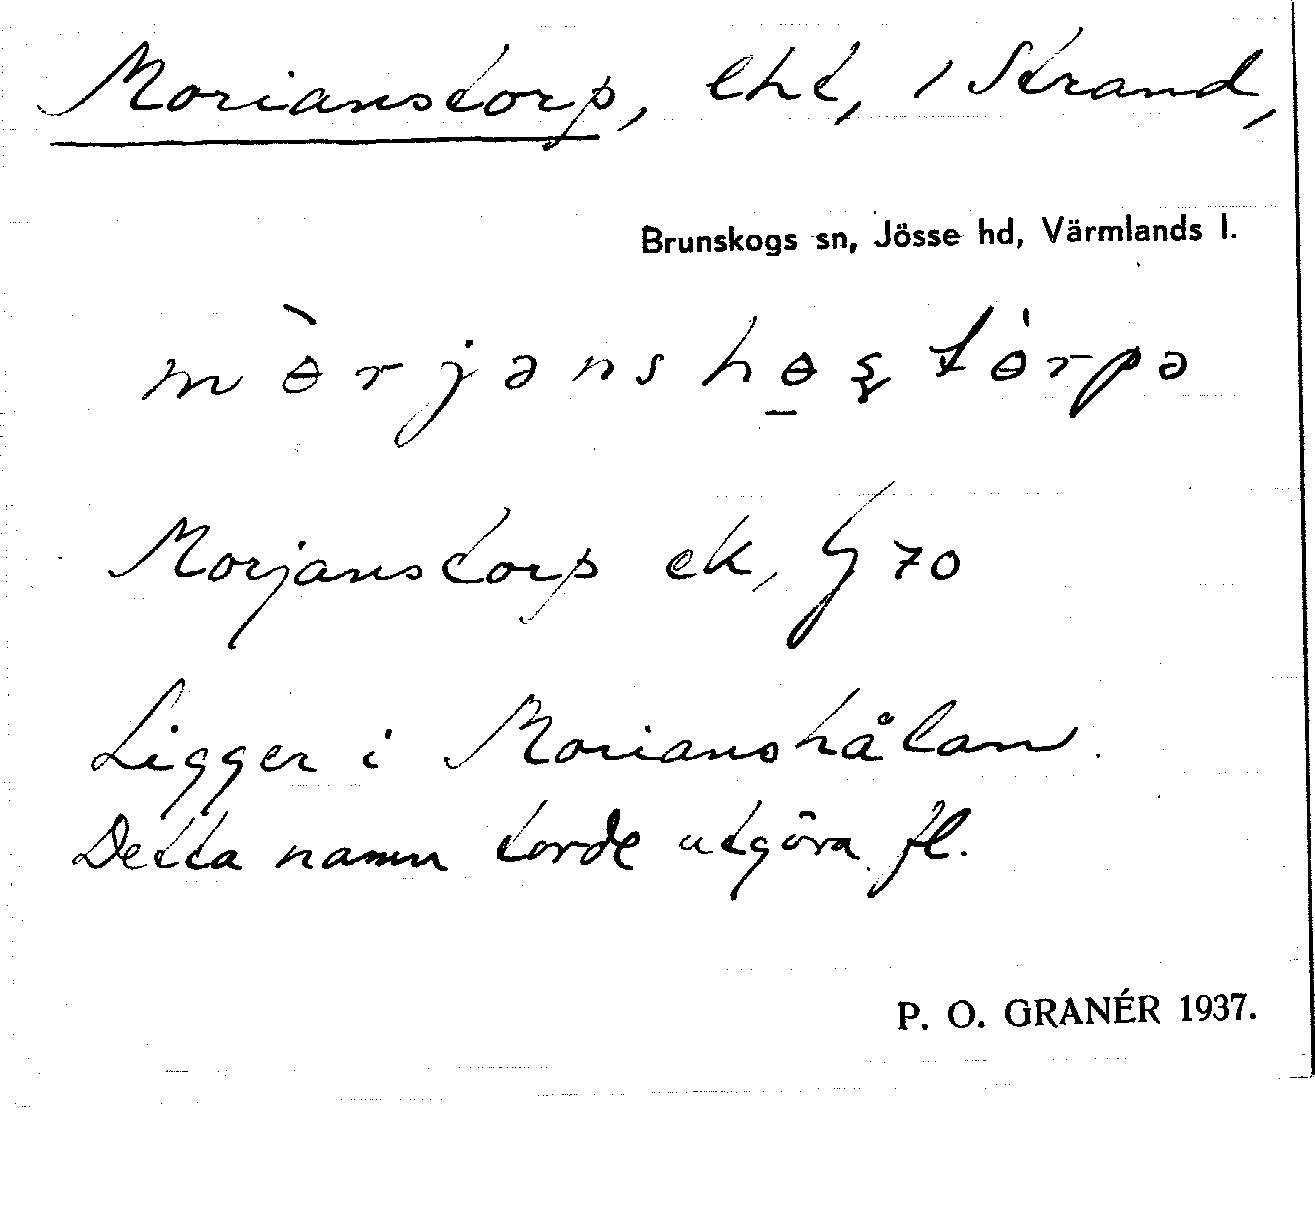 Morianstorp, lht, i Strand,
Brunskogs sn, Jösse hd, Värmlands l.
mɵ̀rjəns hɵ̠ʂ tɵ́rpə
Morjanstorp ek, G 70
Ligger i Morianshålan.
Detta namn torde utgöra fl.
P. O. GRANÉR 1937.